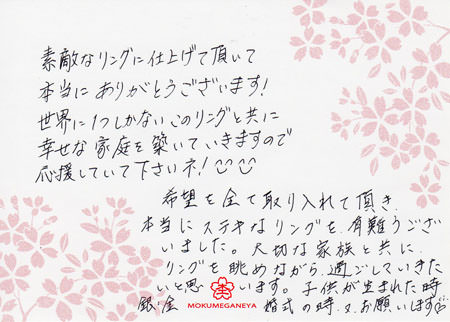 素敵なリングに仕上げて頂いて
本当にありがとうございます!
世界に1つしかないこのリングと共に
幸せな家庭を築いていきますので
応援していて下さいネ!
希望を全て取り入れて頂き
本当にステキなリングを、有難うござい
ました。大切な家族と共に、
リングを眺めながら、過ごしていきた
いと思います。子供が生まれた時
銀・金婚式の時、又お願いします
MOKUMEGANEYA